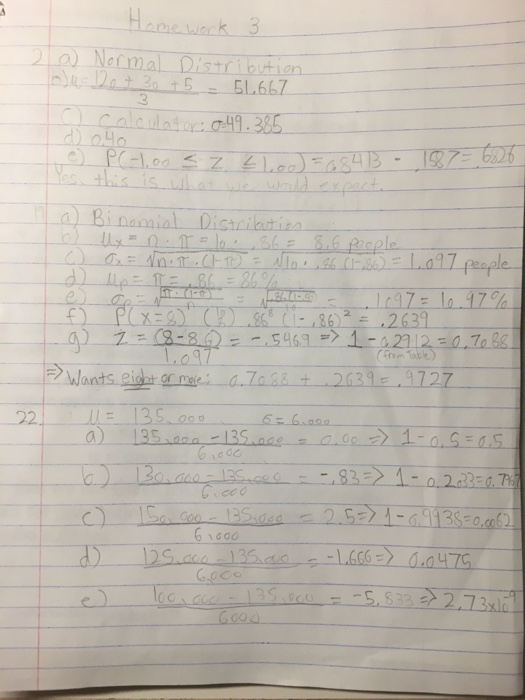 Homework 3
2 a) Normal Distribution
b) μ = 120 + 30 + 5 / 3 = 51.667
c) Calculator: σ=49.385
d) 0.40
e) P(-1.00 ≤ Z ≤ 1.00) = .8413 - .1587 = .6826
Yes, this is what we would expect.
a) Binomial Distribution
b) μx = n · π = 10 · .86 = 8.6 people
c) σx = √n·π·(1-π) = √10 · .86 (1-.86) = 1.097 people
d) μp = π = .86 = 86%
e) σp = √π·(1-π) / n = = .1097 = 10.97%
f) P(x=8) (10 8) .86⁸ (1-.86)² = .2639
g) Z = (8-8.6) / 1.097 = -.5469 => 1 - 0.2912 = 0.7088
(from Table)
=> Wants eight or more: 0.7088 + .2639 = .9727
22. μ = 135,000 σ = 6,000
a) 135,000 - 135,000 / 6,000 = 0.00 => 1 - 0.5 = 0.5
b) 130,000 - 135,000 / 6,000 = -.83 => 1 - 0.2033 = 0.7967
c) 150,000 - 135,000 / 6,000 = 2.5 => 1 - 0.9938 = 0.0062
d) 125,000 - 135,000 / 6,000 = -1.666 => 0.0475
e) 100,000 - 135,000 / 6000 = -5.833 => 2.73x10⁻⁹